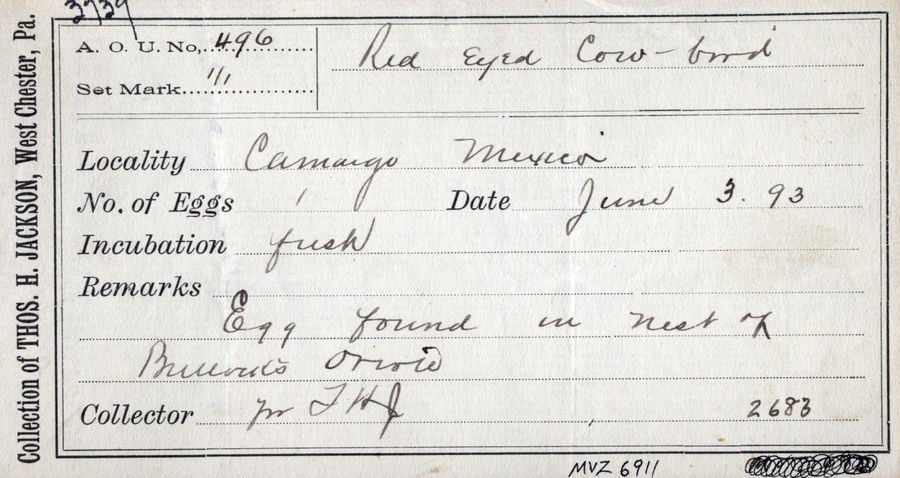 3739
A. O. U. No, 496
Red Eyed Cow-bird
Set Mark 1/1
Collection of THOS. H. JACKSON, West Chester, Pa.
Locality Camargo Mexico
No. of Eggs 1 Date June 3. 93
Incubation fresh
Remarks
Egg found in nest of
Bullock's Oriole
Collector for T H J 2683
MVZ 6911